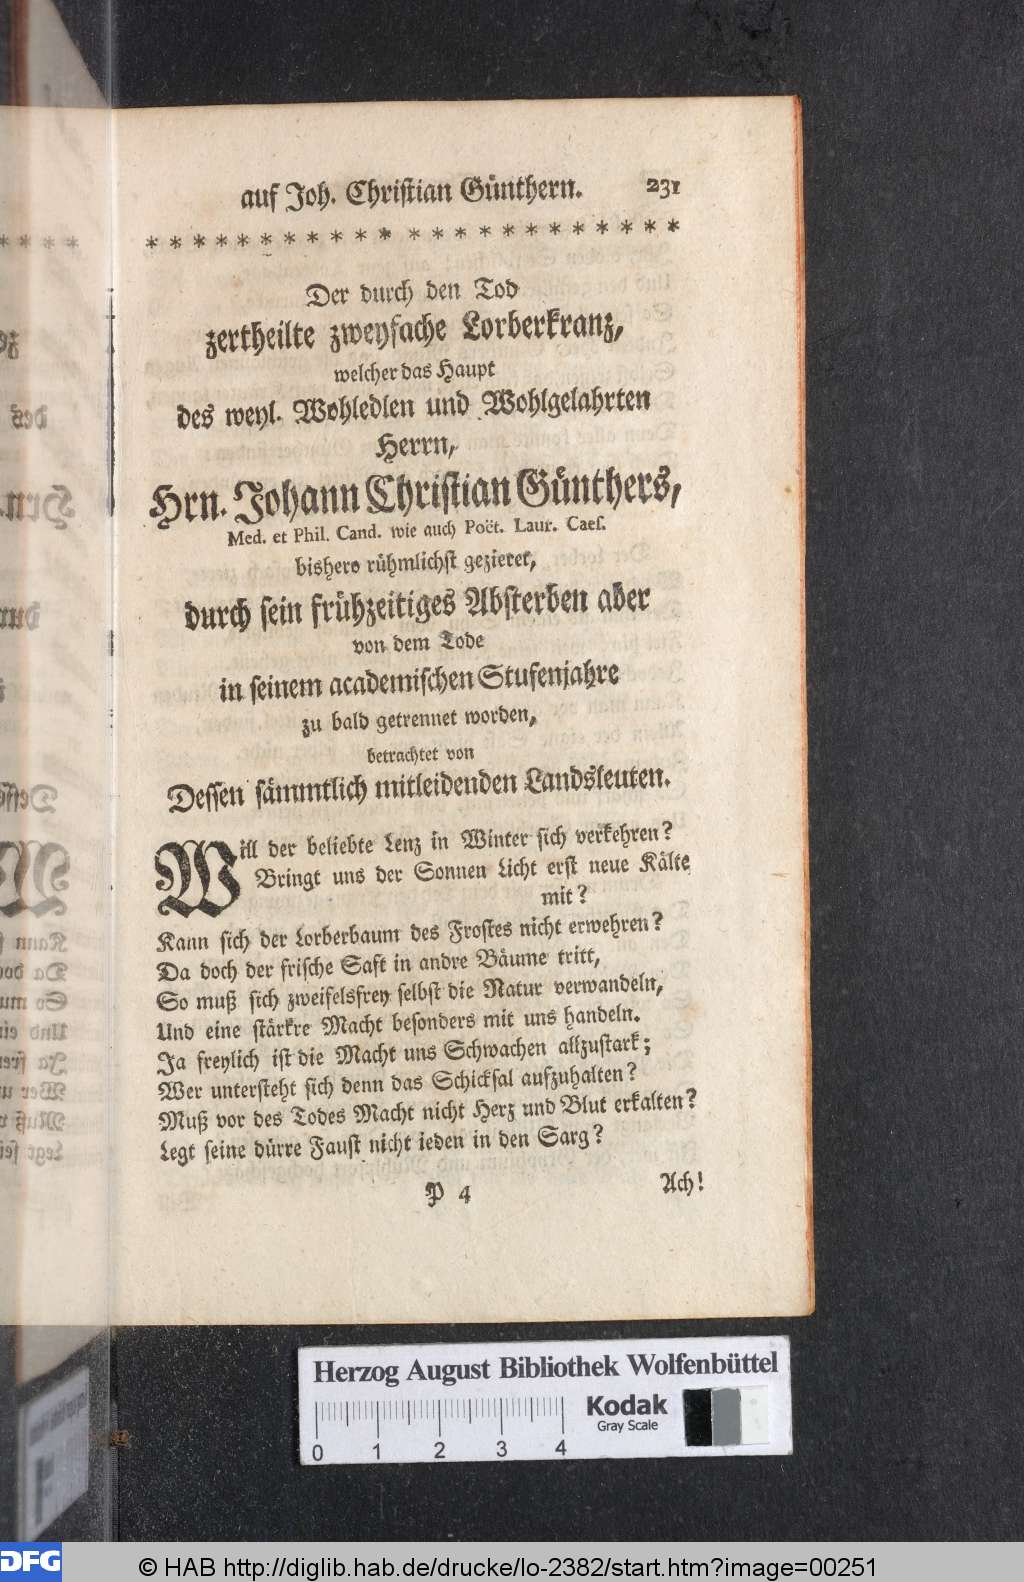 auf Joh. Christian Günthern. 231
* * * * * * * * * * * * * * * * * * * * * * *
Der durch den Tod
zertheilte zweyfache Lorberkranz,
welcher das Haupt
des weyl. Wohledlen und Wohlgelahrten
Herrn,
Hrn. Johann Christian Günthers,
Med. et Phil. Cand. wie auch Poët. Laur. Caes.
bishero rühmlichst gezieret,
durch sein frühzeitiges Absterben aber
von dem Tode
in seinem academischen Stufenjahre
zu bald getrennet worden,
betrachtet von
Dessen sämmtlich mitleidenden Landsleuten.
Will der beliebte Lenz in Winter sich verkehren?
Bringt uns der Sonnen Licht erst neue Kälte
mit?
Kann sich der Lorberbaum des Frostes nicht erwehren?
Da doch der frische Saft in andre Bäume tritt,
So muß sich zweifelsfrey selbst die Natur verwandeln,
Und eine stärkre Macht besonders mit uns handeln.
Ja freylich ist die Macht uns Schwachen allzustark;
Wer untersteht sich denn das Schicksal aufzuhalten?
Muß vor des Todes Macht nicht Herz und Blut erkalten?
Legt seine dürre Faust nicht ieden in den Sarg?
P 4 Ach!
Herzog August Bibliothek Wolfenbüttel
Kodak
Gray Scale
0 1 2 3 4
DFG © HAB http://diglib.hab.de/drucke/lo-2382/start.htm?image=00251